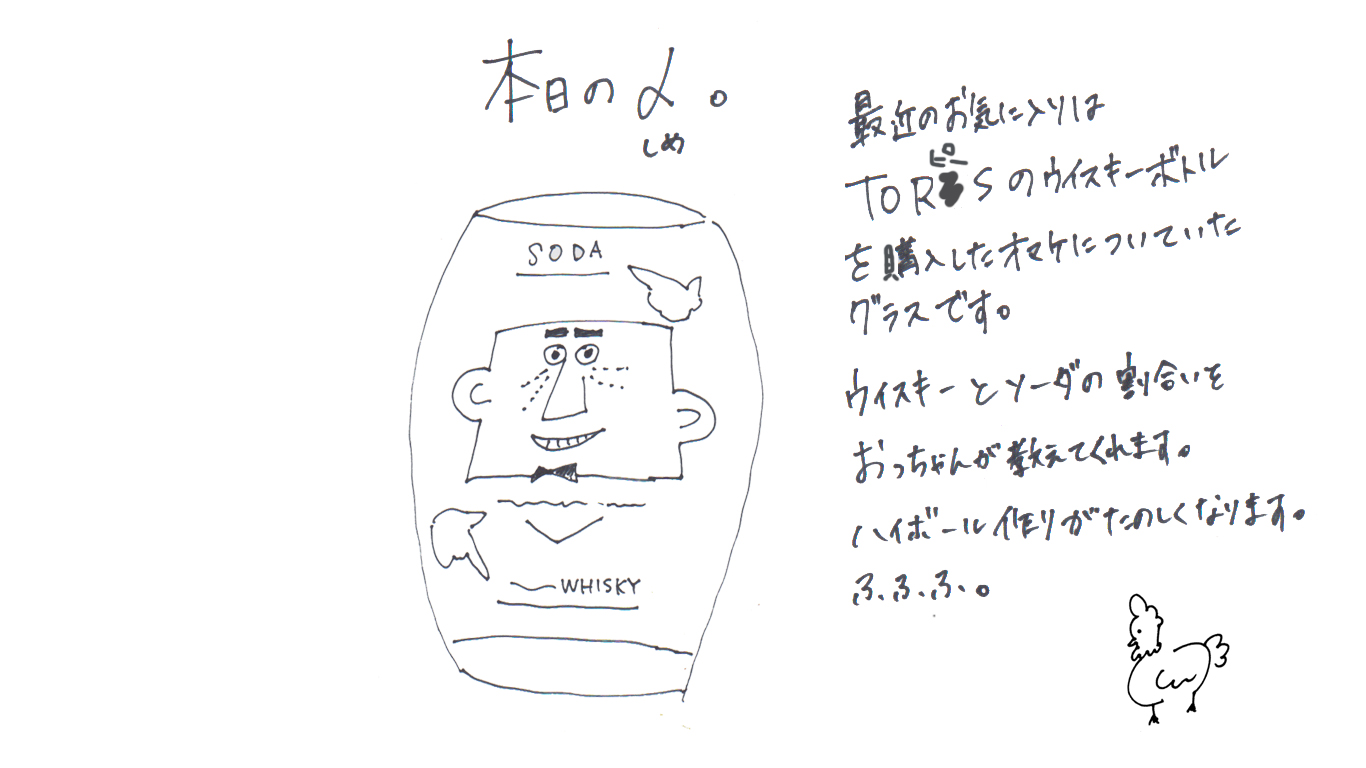 本日の〆。
しめ
SODA
WHISKY
最近のお気に入りは
ピー
TOR Sのウイスキーボトル
を購入したオマケについていた
グラスです。
ウイスキーとソーダの割合いを
おっちゃんが教えてくれます。
ハイボール作りがたのしくなります。
ふ、ふ、ふ、。